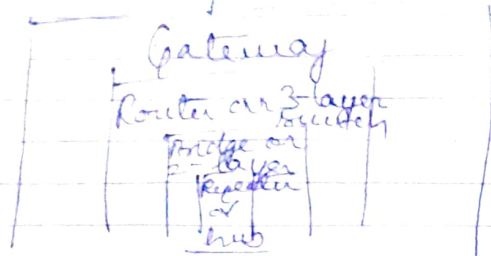 Gateway
Router or 3-layer
switch
Bridge or
2-layer
Repeater
or
hub